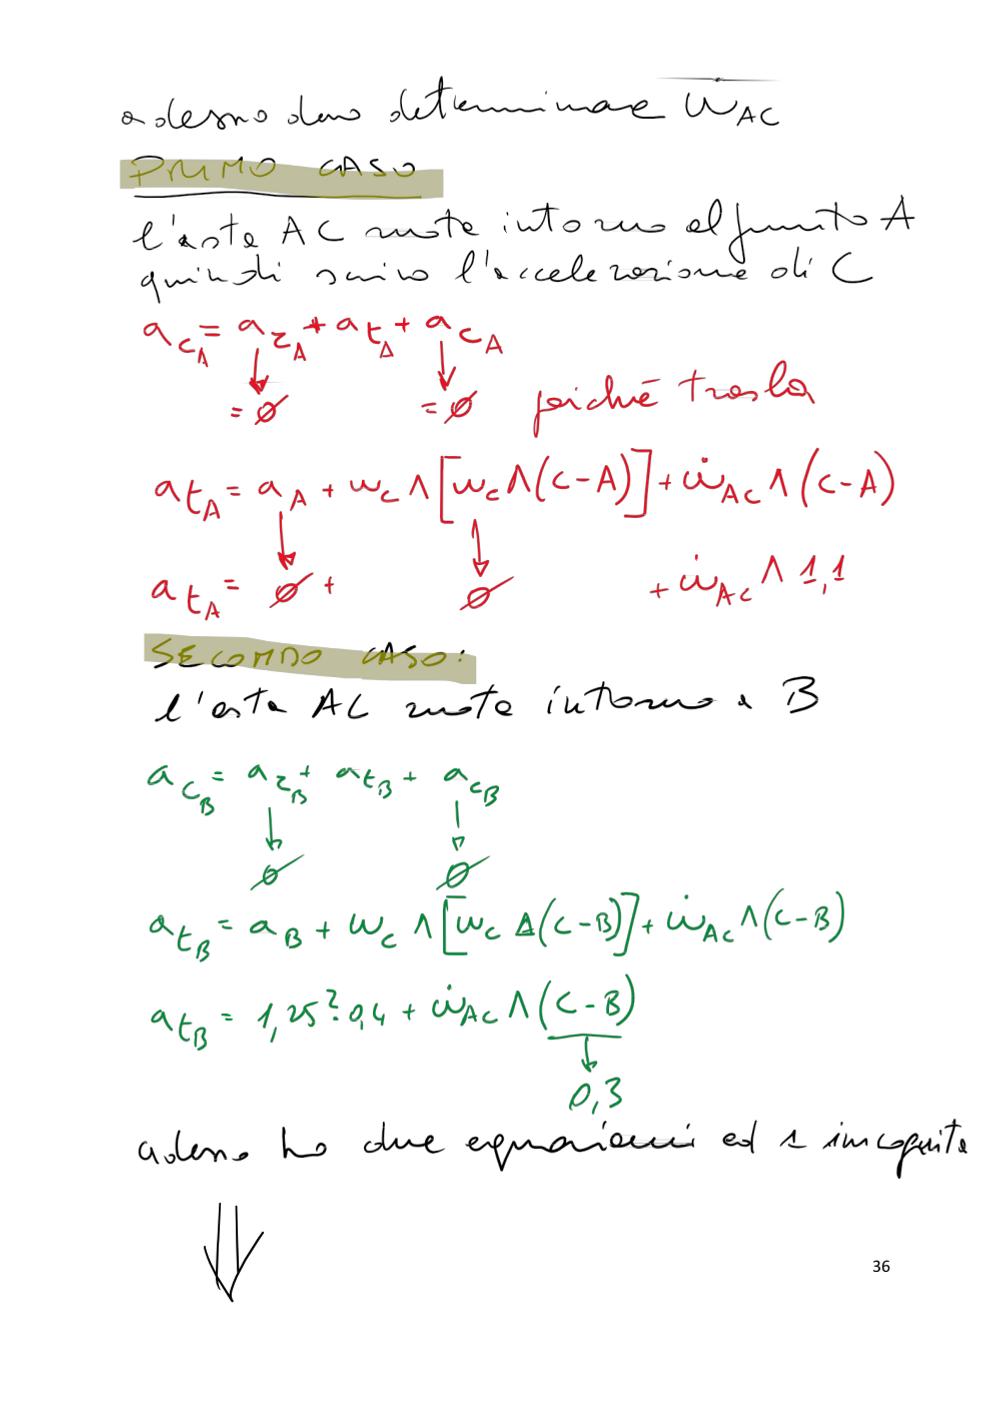 adesso devo determinare ẇ_AC
PRIMO CASO
l'asta AC ruota intorno al punto A
quindi scrivo l'accelerazione di C
a_C_A = a_r_A + a_t_A + a_c_A
= ∅ = ∅ poiché trasla
a_t_A = a_A + w_c ∧ [w_c ∧ (C-A)] + ẇ_AC ∧ (C-A)
a_t_A = ∅ + ∅ + ẇ_AC ∧ 1,1
SECONDO CASO:
l'asta AC ruota intorno a B
a_C_B = a_r_B + a_t_B + a_c_B
∅ ∅
a_t_B = a_B + w_c ∧ [w_c ∧ (C-B)] + ẇ_AC ∧ (C-B)
a_t_B = 1,25² · 0,4 + ẇ_AC ∧ (C-B)
0,3
adesso ho due equazioni ed 1 incognita
36